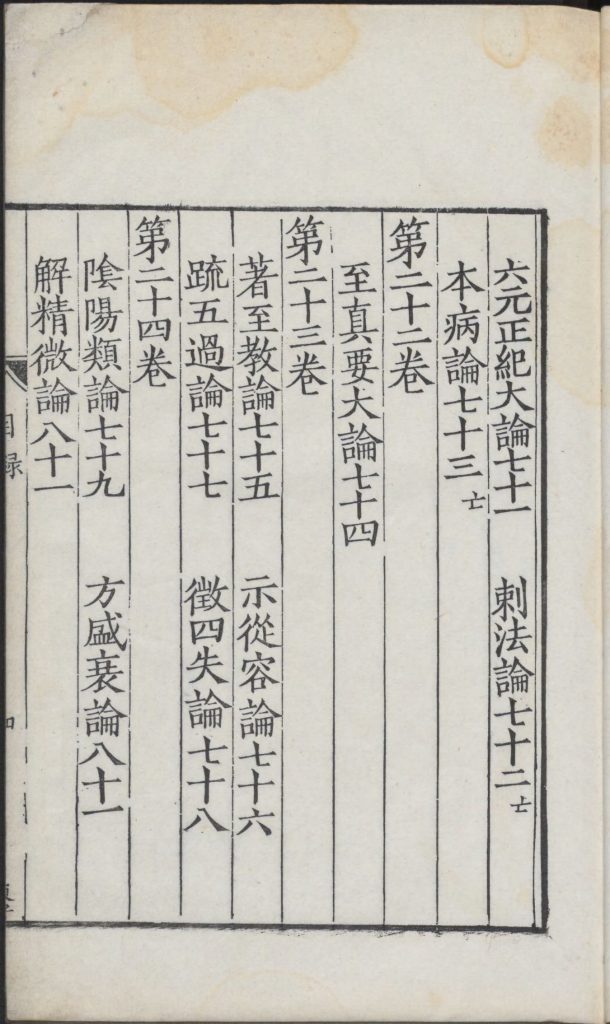 六元正紀大論七十一　刺法論七十二亡
本病論七十三亡
第二十二卷
至真要大論七十四
第二十三卷
著至教論七十五　示從容論七十六
疏五過論七十七　徵四失論七十八
第二十四卷
陰陽類論七十九　方盛衰論八十一
解精微論八十一
目録